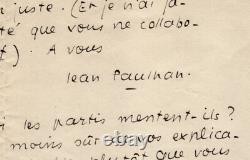 juste. (Et je n'ai ja-
té que vous ne collabo-
). A vous
Jean Paulhan.
les partis mentent-ils ?
moins sûr vos explica-
plutôt que vous